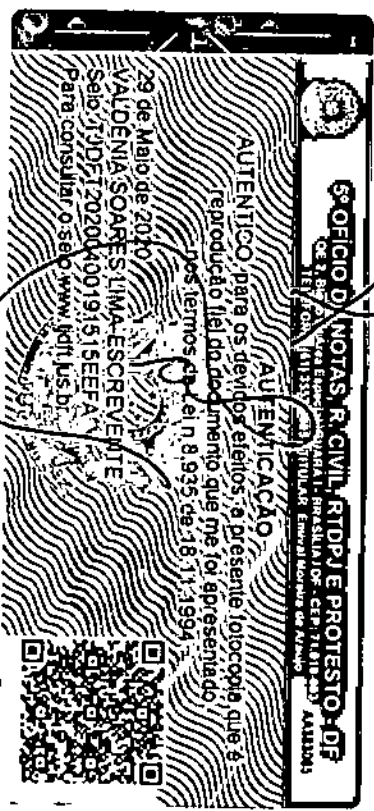 5º OFÍCIO DE NOTAS, R. CIVIL, RTDPJ E PROTESTO - DF
AUTENTICAÇÃO
AUTENTICO para os devidos efeitos a presente fotocópia que é
reprodução fiel do documento que me foi apresentado
nos termos da Lei n 8.935 de 18.11.1994
29 de Maio de 2020
VALDENIA SOARES LIMA-ESCREVENTE
Selo: TJDFT20200400191515EEFA
Para consultar o selo www.tjdft.jus.br